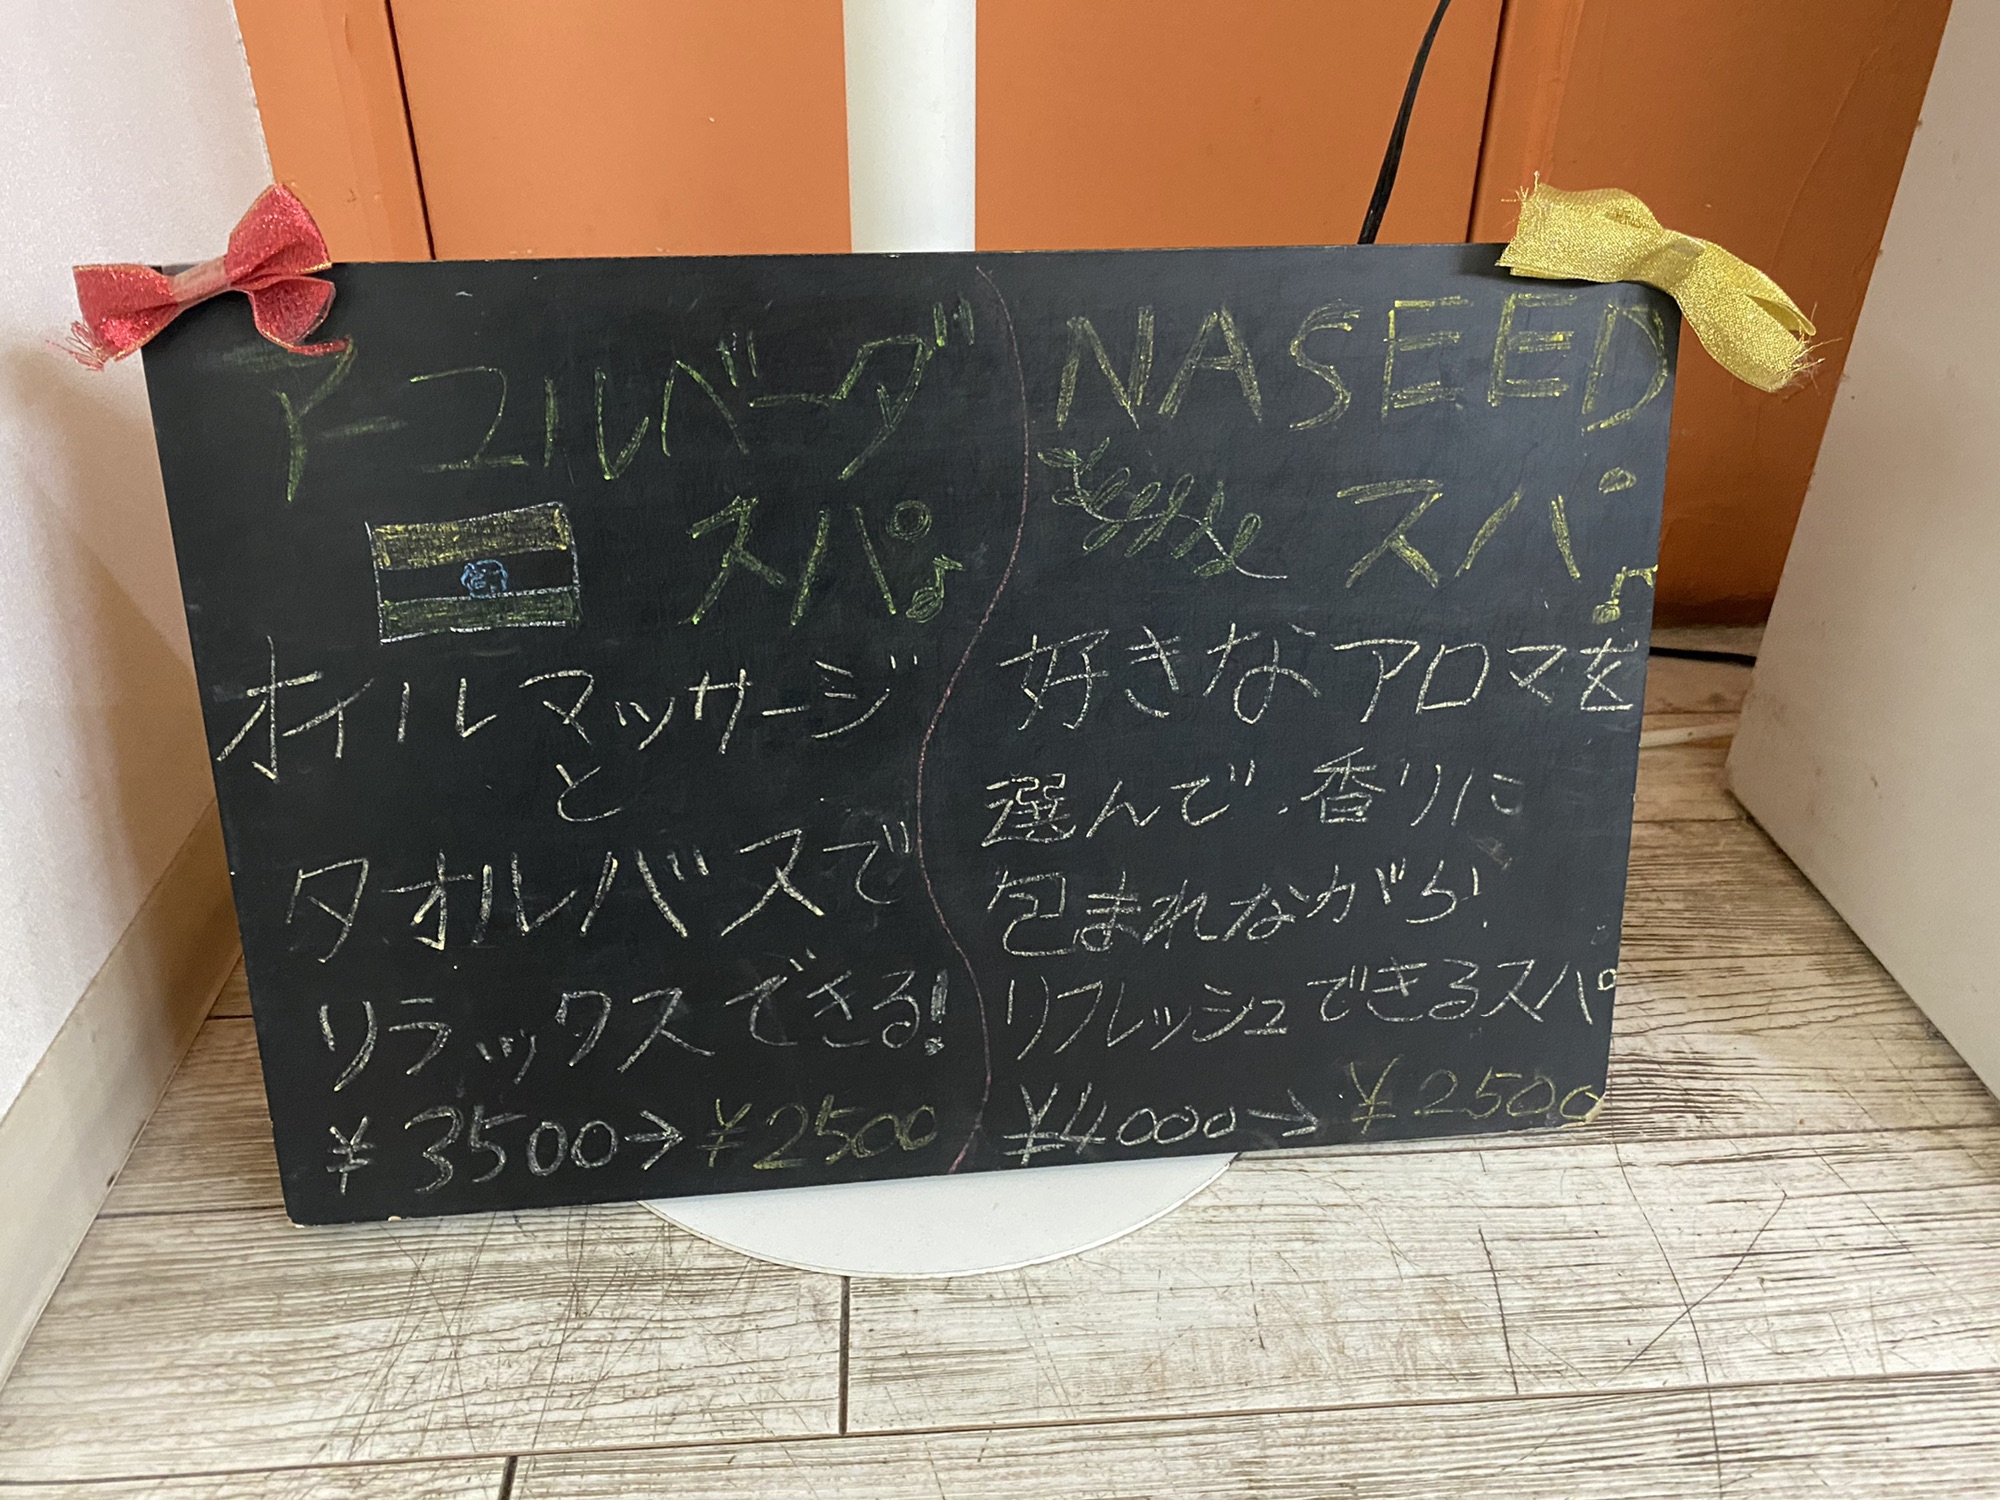 アーユルベーダ
スパ♪
オイルマッサージ
と
タオルバスで
リラックスできる!
¥3500→¥2500
NASEED
スパ♪
好きなアロマを
選んで、香りに
包まれながら、
リフレッシュできるスパ。
¥4000→¥2500